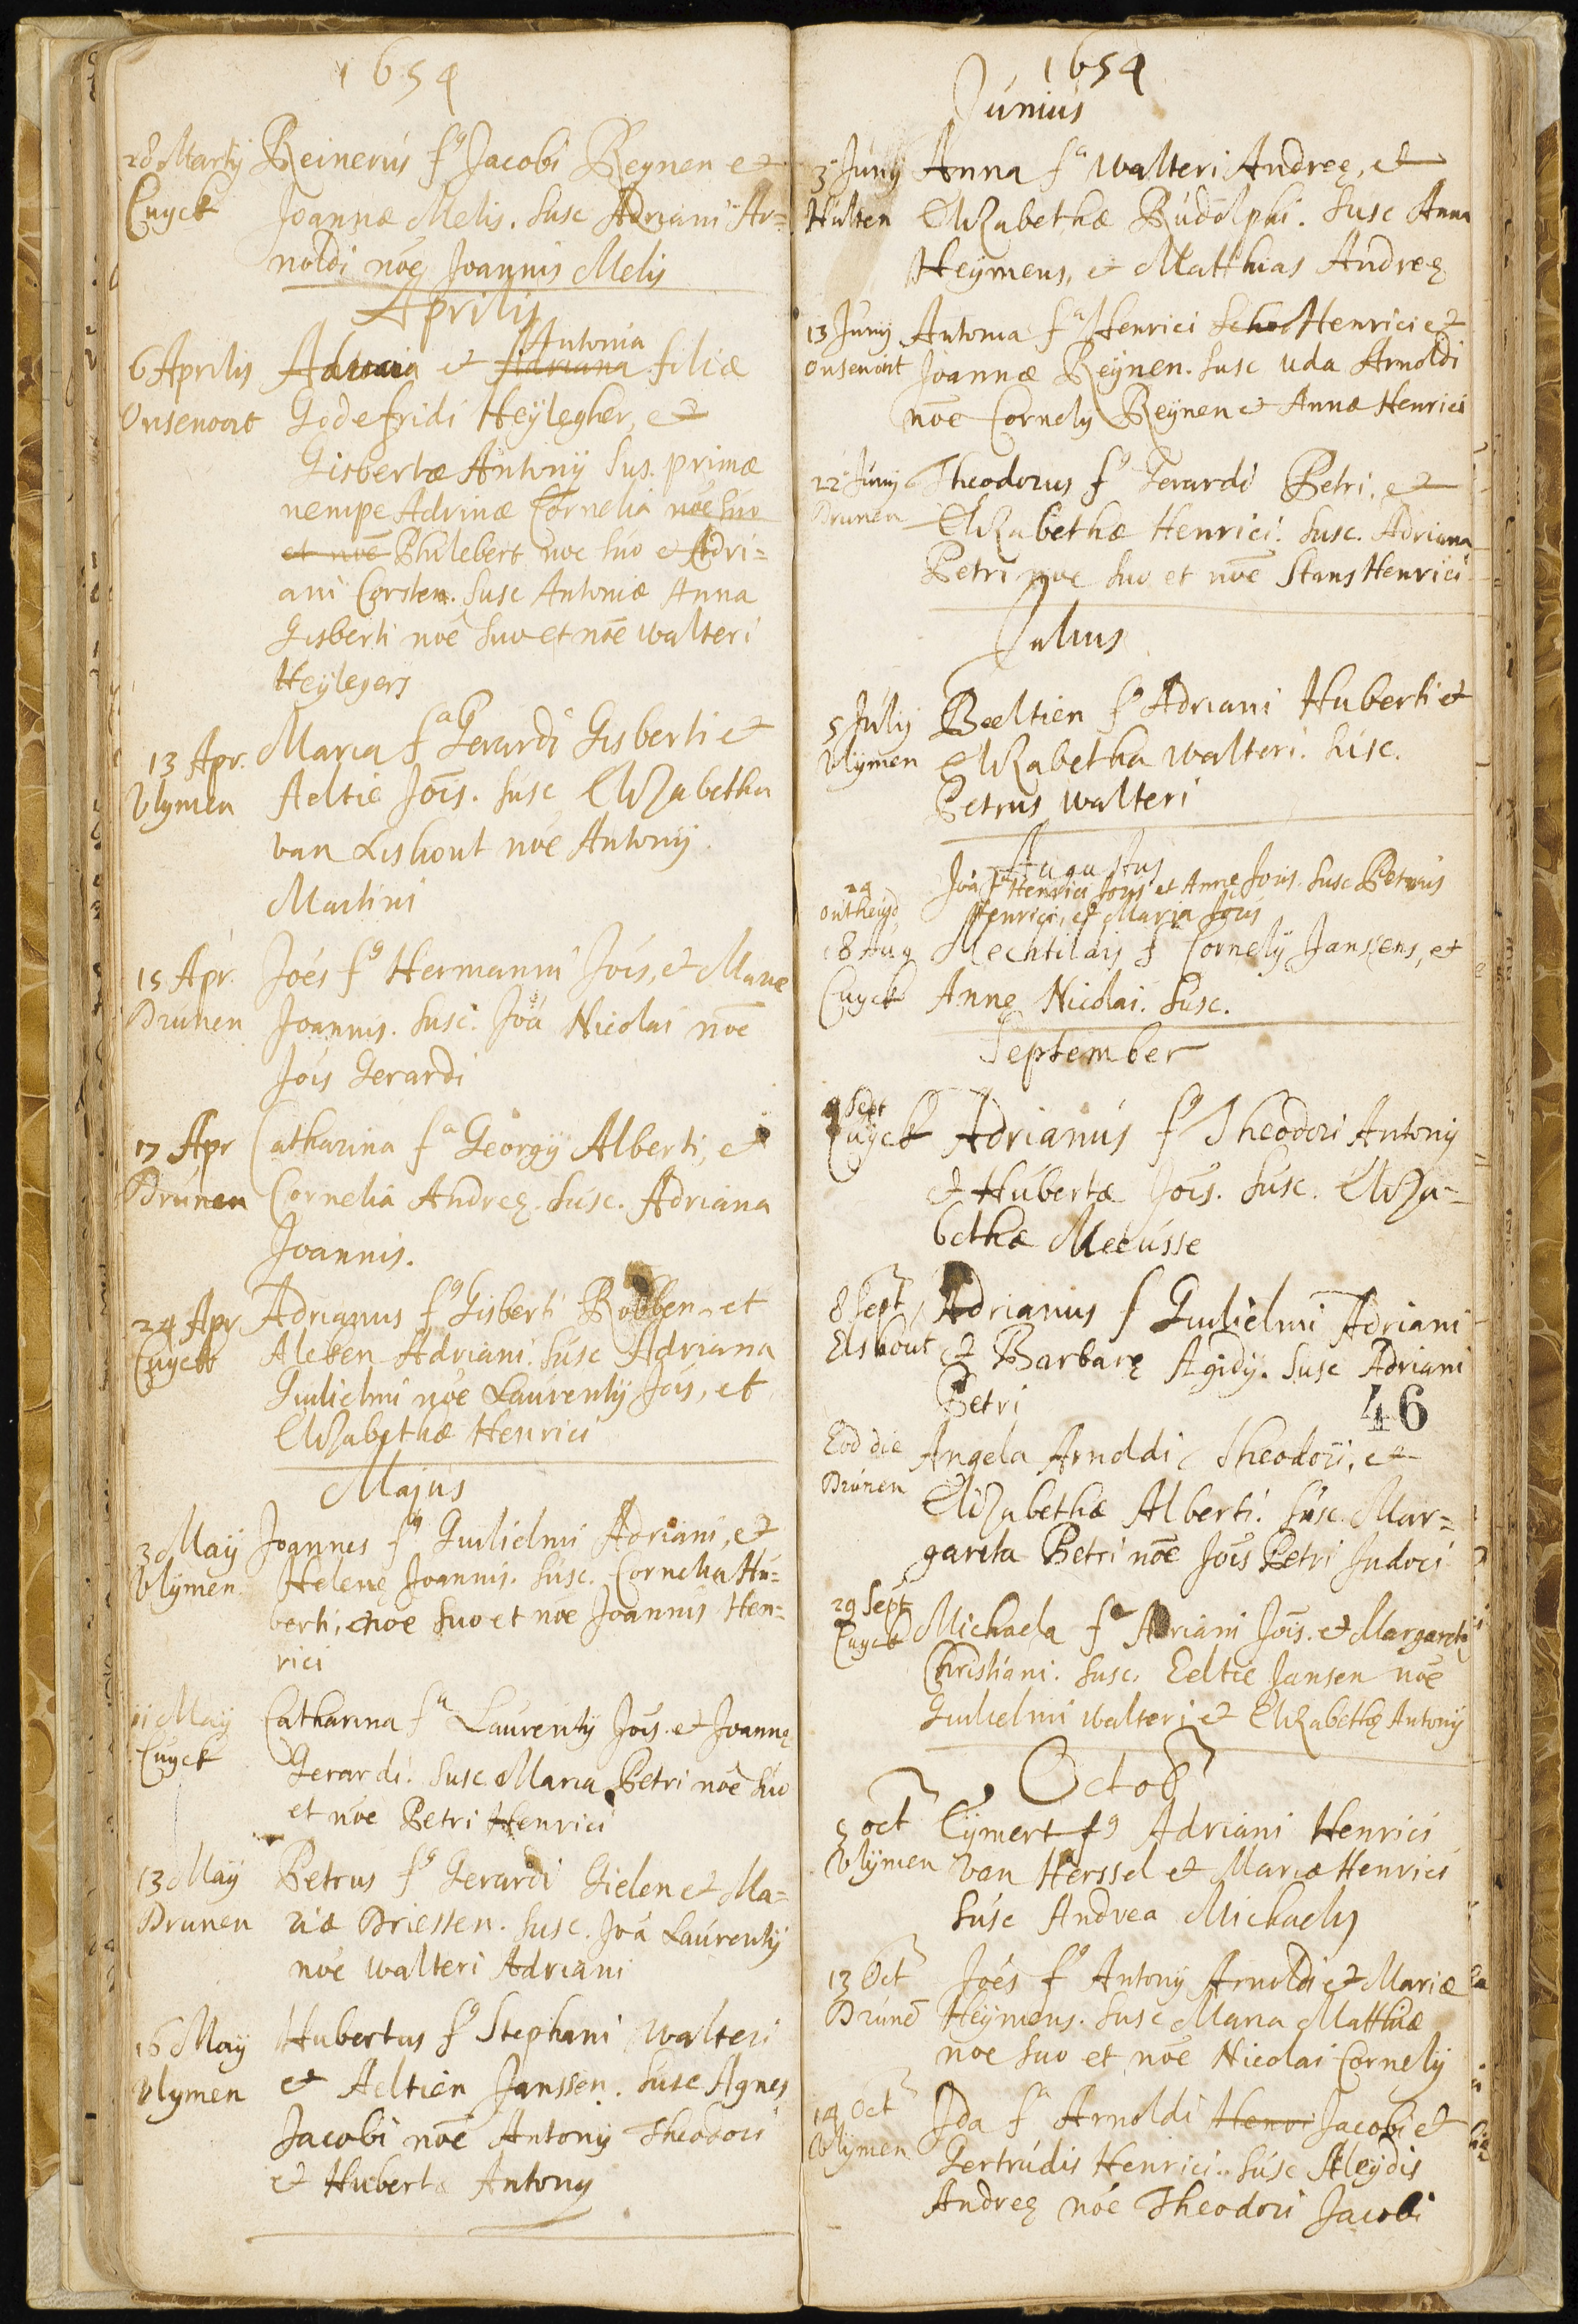 1654
28 Martij Reinerus f⁹ Jacobi Reynen et
Cuyck Joannæ Melis. Susc Adriani Ar=
noldi nōe Joannis Melis
Aprilis
Antonia
6 Aprilis Adriana et Adriana filiæ
Onsenoort Godefridi Heÿlegher, et
Gisbertæ Antonij Sus. primæ
nempe Adrinæ Cornelia nōe suo
et nōe Philebert noe suo et Adri=
ani Corsten. Susc Antoniæ Anna
Gisberti nōe suo et nōe walteri
Heÿlegers
13 Apr. Maria fᵃ Gerardi Gisberti et
Vlymen Aeltie Jōis. Susc Elizabetha
van Lishout nōe Antonij
Martini
15 Apr. Joēs f⁹ Hermanni Jōis, et Mariæ
Drunen Joannis. Susc. Joā Nicolai nōe
Jōis Gerardi
17 Apr Catharina fᵃ Georgij Alberti, et
Drunen Cornelia Andreę. Susc. Adriana
Joannis.
24 Apr Adrianus f⁹ Gisberti Robben et
Cuyck Aleken Adriani. Susc Adriana
Gulielmi nōe Laurentij Jōis, et
Elizabethæ Henrici
Majus
3 Maÿ Joannes f⁹ Gulielmi Adriani, et
Vlÿmen Helenę Joannis. Susc. Cornelia Hu=
berti, noe suo et noe Joannis Hen=
rici
11 Maÿ Catharina fᵃ Laurentij Jōis et Joannę
Cuyck Gerardi. Susc Maria Petri nōe suo
et nōe Petri Henrici
13 Maÿ Petrus f⁹ Gerardi Gielen et Ma=
Drunen riæ Driessen. Susc. Joā Laurentij
nōe walteri Adriani
16 Maÿ Hubertus f⁹ Stephani Walteri
Vlymen et Aeltien Janssen. Susc Agnes
Jacobi nōe Antonij Theodori
et Huberta Antony
1654
Junius
3 Junij Anna fᵃ Walteri Andreę, et
Hulten Elizabethæ Rudolphi. Susc Anna
Heÿmens, et Matthias Andreę
13 Junij Antonia fᵃ Henrici Scho Henrici et
Onsenoirt Joannæ Reÿnen. Susc uda Arnoldi
nōe Cornelij Reÿnen et Annæ Henrici
22 Junij Theodorus f⁹ Gerardi Petri, et
Drunen Elizabethæ Henrici. Susc. Adriana
Petri noe suo et nōe Stans Henrici
Julius
5 Julij Beeltien f⁹ Adriani Huberti et
Vlÿmen Elizabetha walteri. Susc.
Petrus walteri
Augustus
24 Joā fᵃ Henrici Joris et Anne Joris. Susc Petrus
Outheusd Henrici, et Maria Joris
18 Aug Mechtildis f Cornelÿ Janssens, et
Cuyck Annę Nicolai. Susc.
September
Sept
Cuÿck Adrianus f⁹ Theodori Antonij
et Hubertæ Jōis. Susc. Eliza=
bethæ Meeusse
8 Sept Adrianus f Gulielmi Adriani
Elshout et Barbarę Agidÿ. Susc Adriani
Petri
46
Eod die Angela Arnoldi Theodori, et
Drunen Elizabethæ Alberti. Susc. Mar=
gareta Petri nōe Jōis Petri Judoci
29 Sept
Cuyck Michaela fᵃ Adriani Jōis. et Margaretę
Christiani. Susc. Eeltie Jansen nōe
Gulielmi walteri et Elizabethę Antonij
Octob
5 oct Eÿmert f⁹ Adriani Henrici
Vlÿmen van Herssel et Mariæ Henrici
Susc Andrea Michaelis
13 Oct Joēs f⁹ Antonij Arnoldi et Mariæ
Drunē Heÿmens. Susc Maria Matthiæ
noe suo et nōe Nicolai Cornelij
14 Oct Ida fᵃ Arnoldi Henri Jacobi et
Vlÿmen Gertrudis Henrici. Susc Aleÿdis
Andreę nōe Theodori Jacobi